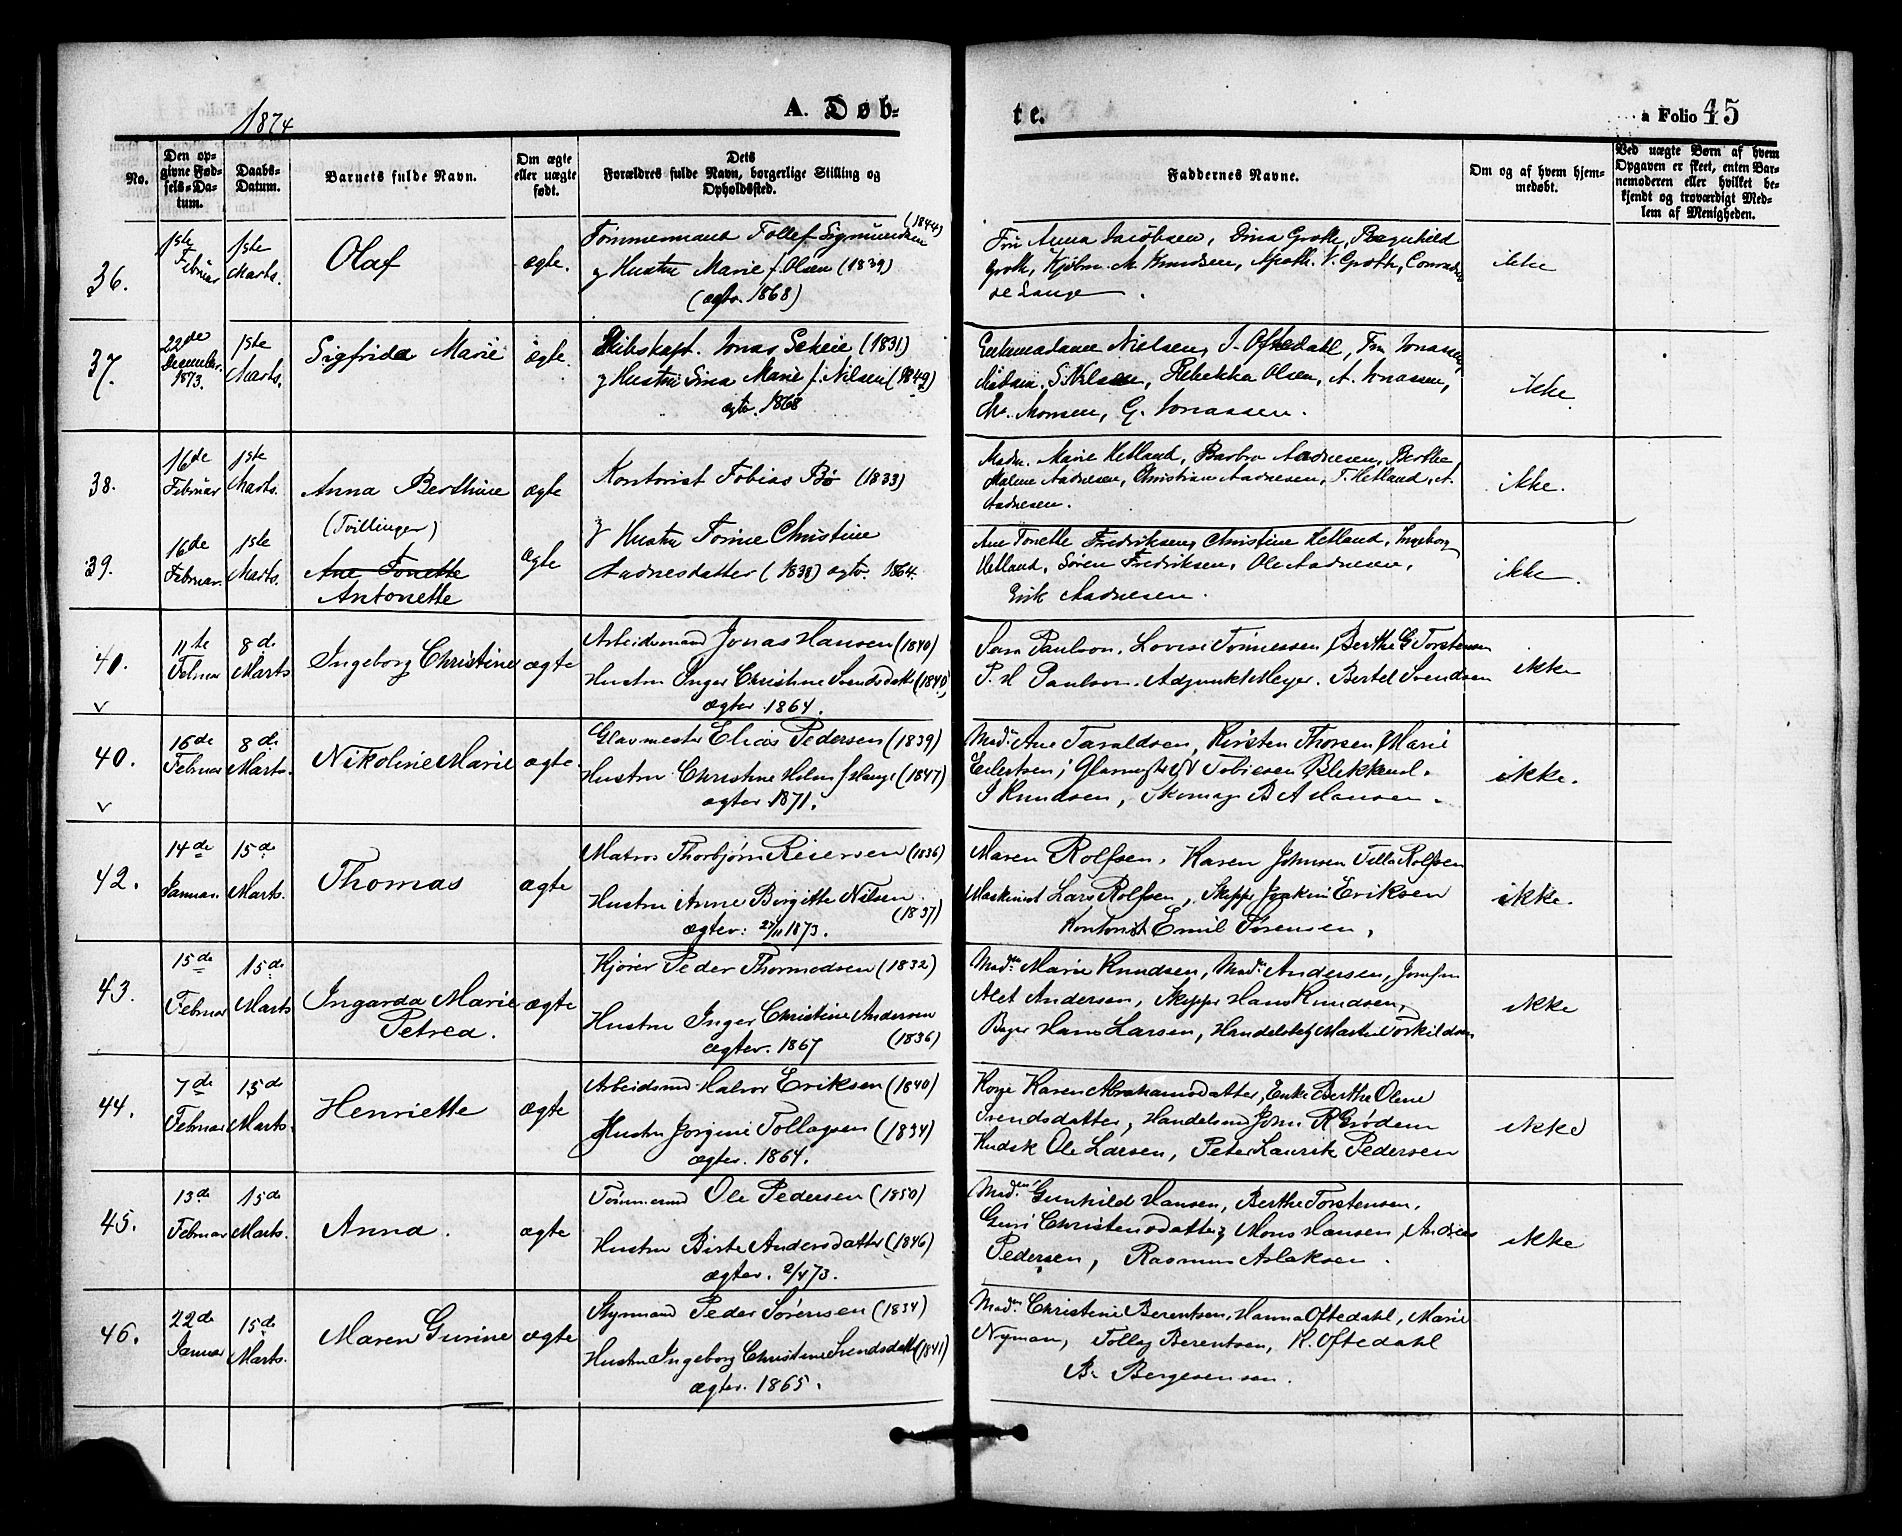 1874
A. Døb-
te.
a Folio 45
No.
Den op-
givne Fød-
sels-Da-
tum.
Daabs-
Datum.
Barnets fulde Navn.
Om ægte
eller uægte
født.
Dets
Forældres fulde Navn, borgerlige Stilling og
Opholdssted.
Faddernes Navne.
Om og af hvem hjem-
medøbt.
Ved uægte Børn af hvem
Opgaven er skeet, enten Bar-
nemoderen eller hvilket be-
kjendt og troværdigt Med-
lem af Menigheden.
36.
1ste
Februar
1ste
Marts.
Olaf
ægte.
Tømmermand Tollef Sigmundsen (1844)
g Hustru Marie f. Olsen (1839)
(ægtv. 1868)
Fru Anna Jacobsen, Dina Groth, Ragnhild
Groth, Kjøbm. M. Knudsen, Apoth. V. Groth, Conradine
de Lange.
ikke
37.
22de
December
1873.
1ste
Marts.
Sigfrida Marie
ægte.
Skibskapt. Jonas (1831)
g Hustru Sina Marie f. Nilsen (1849)
ægtv. 1868
Enkemadame Nielsen, J. Oftedahl, Fru Jonassen,
Madam S. Nilsen, Rebekka Olsen, A. Jonassen,
Chr. Monsen, G. Jonassen.
ikke
38.
16de
Februar
1ste
Marts.
Anna Berthine
(Tvillinger)
ægte
Kontorist Tobias Bø (1833)
Madm. Marie Hetland, Barbro Aadnesen, Berthe
Malene Aadnesen, Christian Aadnesen, T. Hetland, A.
Aadnesen.
ikke.
39.
16de
Februar.
1ste
Marts.
Ane Tonette
Antonette
ægte
g Hustru Tørine Christine
Aadnesdatter (1838) ægtv. 1864.
Ane Tonette Fredriksen, Christine Hetland, Ingeborg
Hetland, Søren Fredriksen, Ole Aadnesen,
Erik Aadnesen.
ikke.
41.
11te
Februar
8de
Marts
Ingeborg Christine
ægte
Arbeidsmand Jonas Hansen (1840)
Hustru Inger Christine Svendsdatter (1840)
ægtev. 1864.
Sara Paulson, Lovise Tønnessen, Berthe G Torstensen
P. H Paulson. Adjunkt Meyer. Bertel Svendsen
ikke
40.
16de
Februar
8de
Marts.
Nikoline Marie
ægte.
Glarmester Elias Pedersen (1839)
Hustru Christine Helene f. Hauge (1847)
ægtev 1871.
Mad. Ane Taraldsen, Kirsten Thorsen, Marie
Eilertsen, Glarmester Tobiesen,
I Knudsen, Skomager B A Hansen.
ikke.
42.
14de
Januar.
15de
Marts.
Thomas
ægte
Matros Thorbjørn Reiersen (1836)
Hustru Anne Birgitte Nilsen (1837)
ægtev: 27/11 1873.
Maren Rolfsen, Karen Johnsen, Rolfsen
Maskinist Lars Rolfsen, Skipper Joakim Eriksen
Kontorist Emil Sørensen.
ikke.
43.
15de
Februar
15de
Marts
Ingarda Marie
Petrea.
ægte
Kjører Peder Thormodsen (1832)
Hustru Inger Christine Andersen
ægtev. 1867 (1836)
Mad. Marie Knudsen, Mad. Andersen, Jomfru
Alet Andersen, Skipper Hans Knudsen,
Bager Hans Larsen, Handelsbetj Martin Torkildsen
ikke
44.
7de
Februar
15de
Marts.
Henriette
ægte
Arbeidsmd Halvor Eriksen (1840)
Hustru Jorgine Tollagsen (1834)
ægtev. 1864.
Kone Karen Abrahamsdatter, Enke Berthe Olene
Svendsdatter, Handelsmd John R Grødem
Kudsk Ole Larsen, Peter Laurits Pedersen
ikke
45.
13de
Februar
15de
Marts.
Anna.
ægte
Tømmermd Ole Pedersen (1850)
Hustru Birte Andersdatter (1846)
ægtev. 2/4 73.
Mad. Gunhild Hansen, Berthe Torstensen,
Guri Christensdatter, Mons Hansen, Andreas
Pedersen, Rasmus Aslaksen.
ikke
46.
22de
Januar
15de
Marts.
Maren Gurine
ægte
Styrmand Peder Sørensen (1834)
Hustru Ingeborg Christine Svendsdatter (1841)
ægtev. 1865.
Mad. Christine Berentsen, Hanna Oftedahl, Marie
Nyman, Tollag Berentsen, K. Oftedahl
B. Bergesensen.